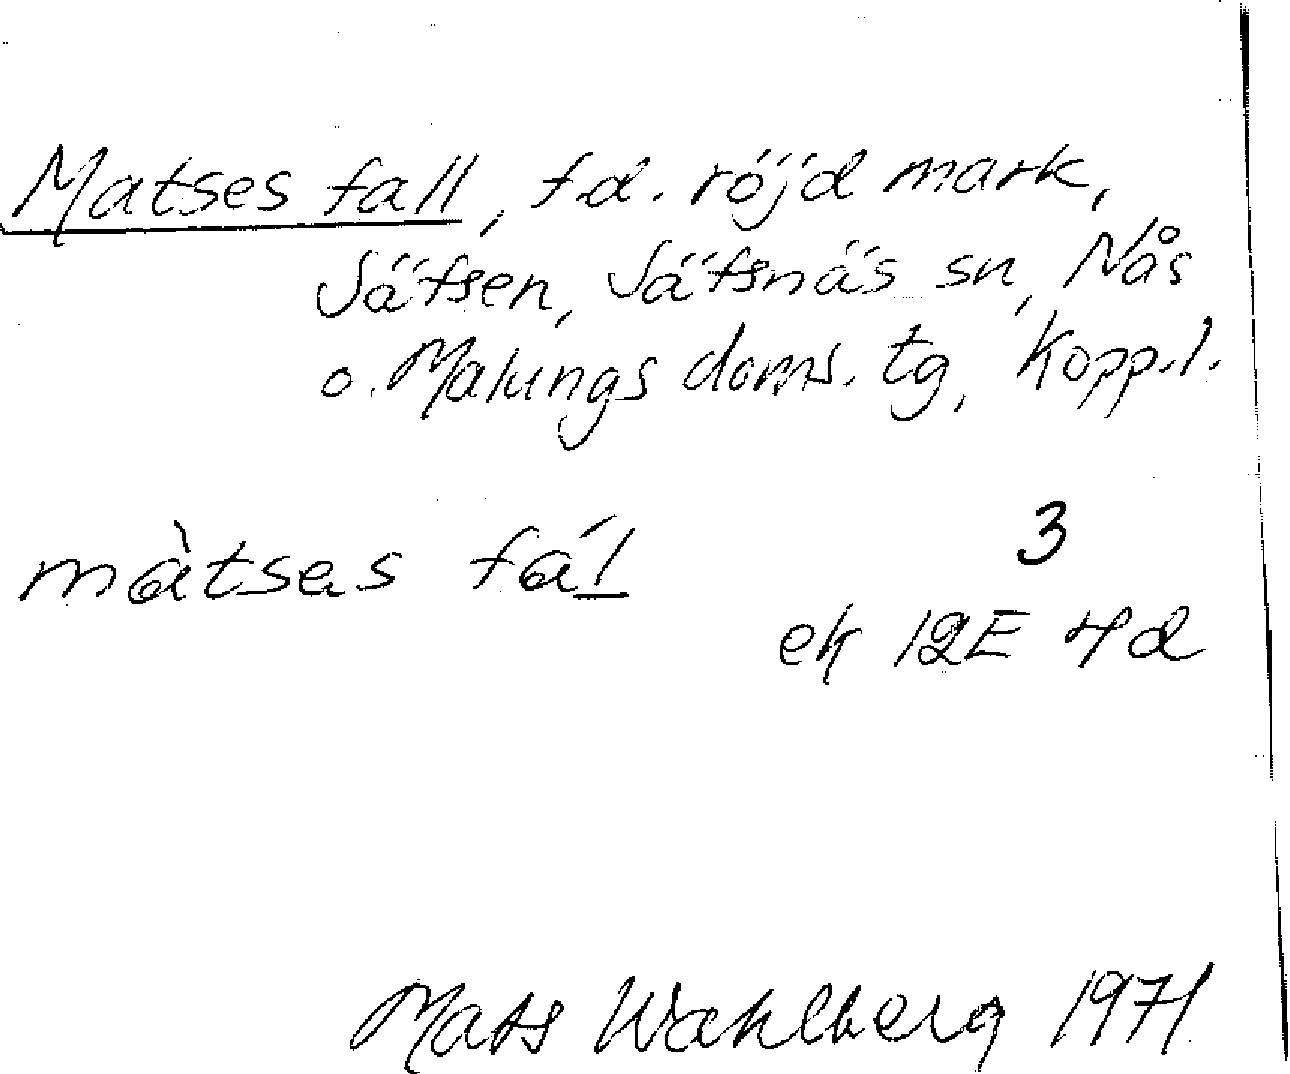 Matses fall, f.d. röjd mark,
Sätsen, Sätsnäs sn, Nås
o. Malungs doms. tg, Kopp.l.
màtsəs fál
3
ek 12E 4d
Mats Wahlberg 1971